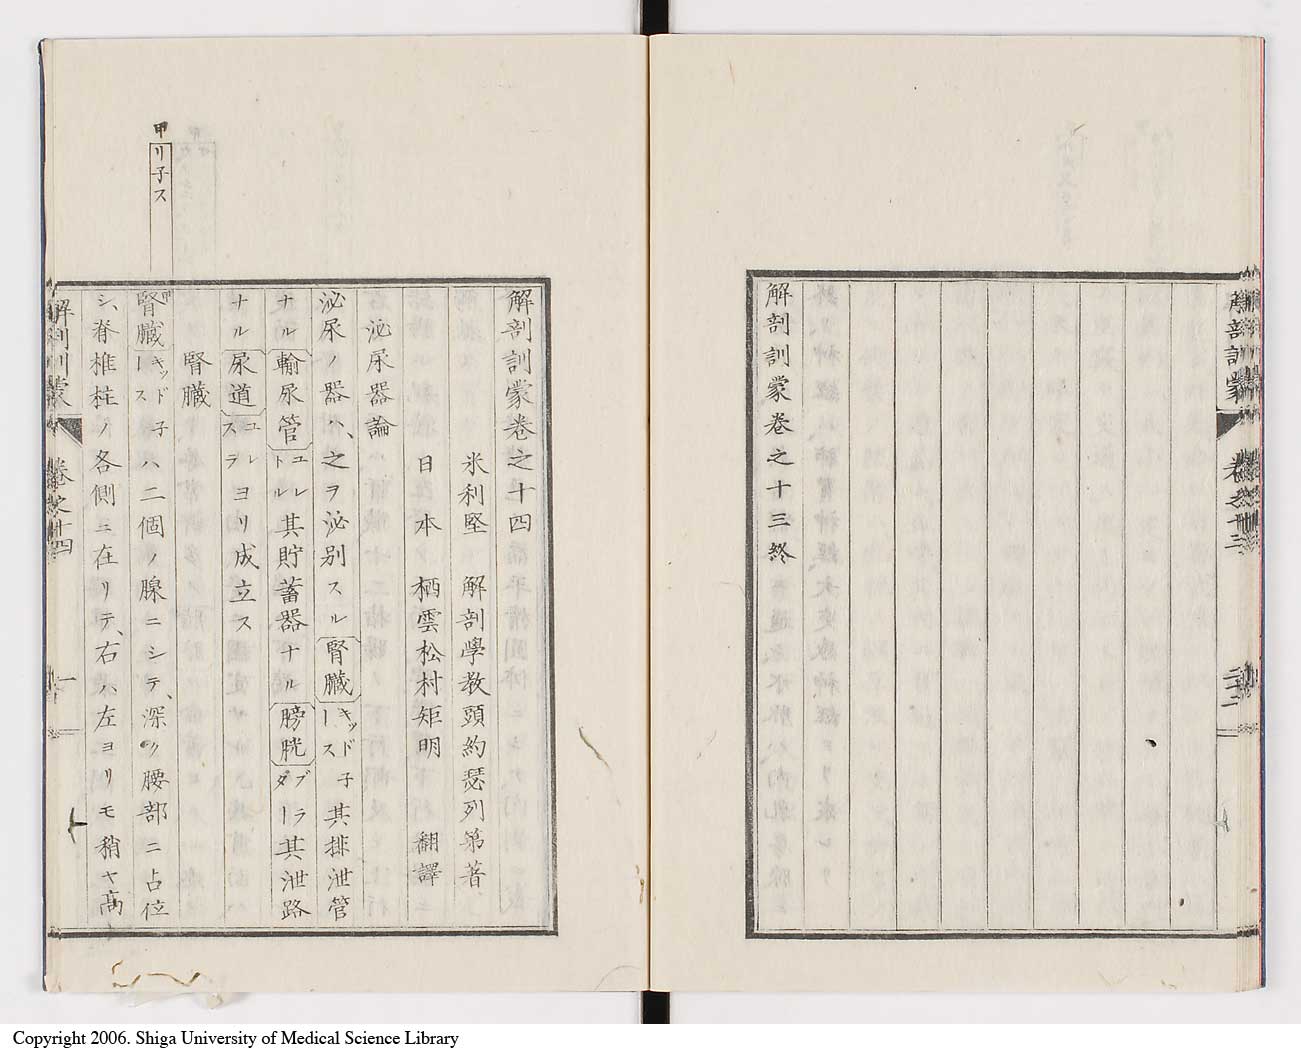 解剖訓蒙
卷之十三
二十二
解剖訓蒙卷之十三終
解剖訓蒙卷之十四
米利堅 解剖學教頭約瑟列第著
日本 栖雲松村矩明 翻譯
泌尿器論
泌尿ノ器ハ、之ヲ泌別スル腎臓キッド子ース其排泄管
ナル輸尿管ユレートル其貯蓄器ナル膀胱ブラダー其泄路
ナル尿道ユレスラヨリ成立ス
腎臓
甲リ子ス
腎臓甲キッド子ースハ二個ノ腺ニシテ、深ク腰部ニ占位
シ、脊椎柱ノ各側ニ在リテ、右ハ左ヨリモ稍ヤ高
解剖訓蒙
卷之十四
一
Copyright 2006. Shiga University of Medical Science Library